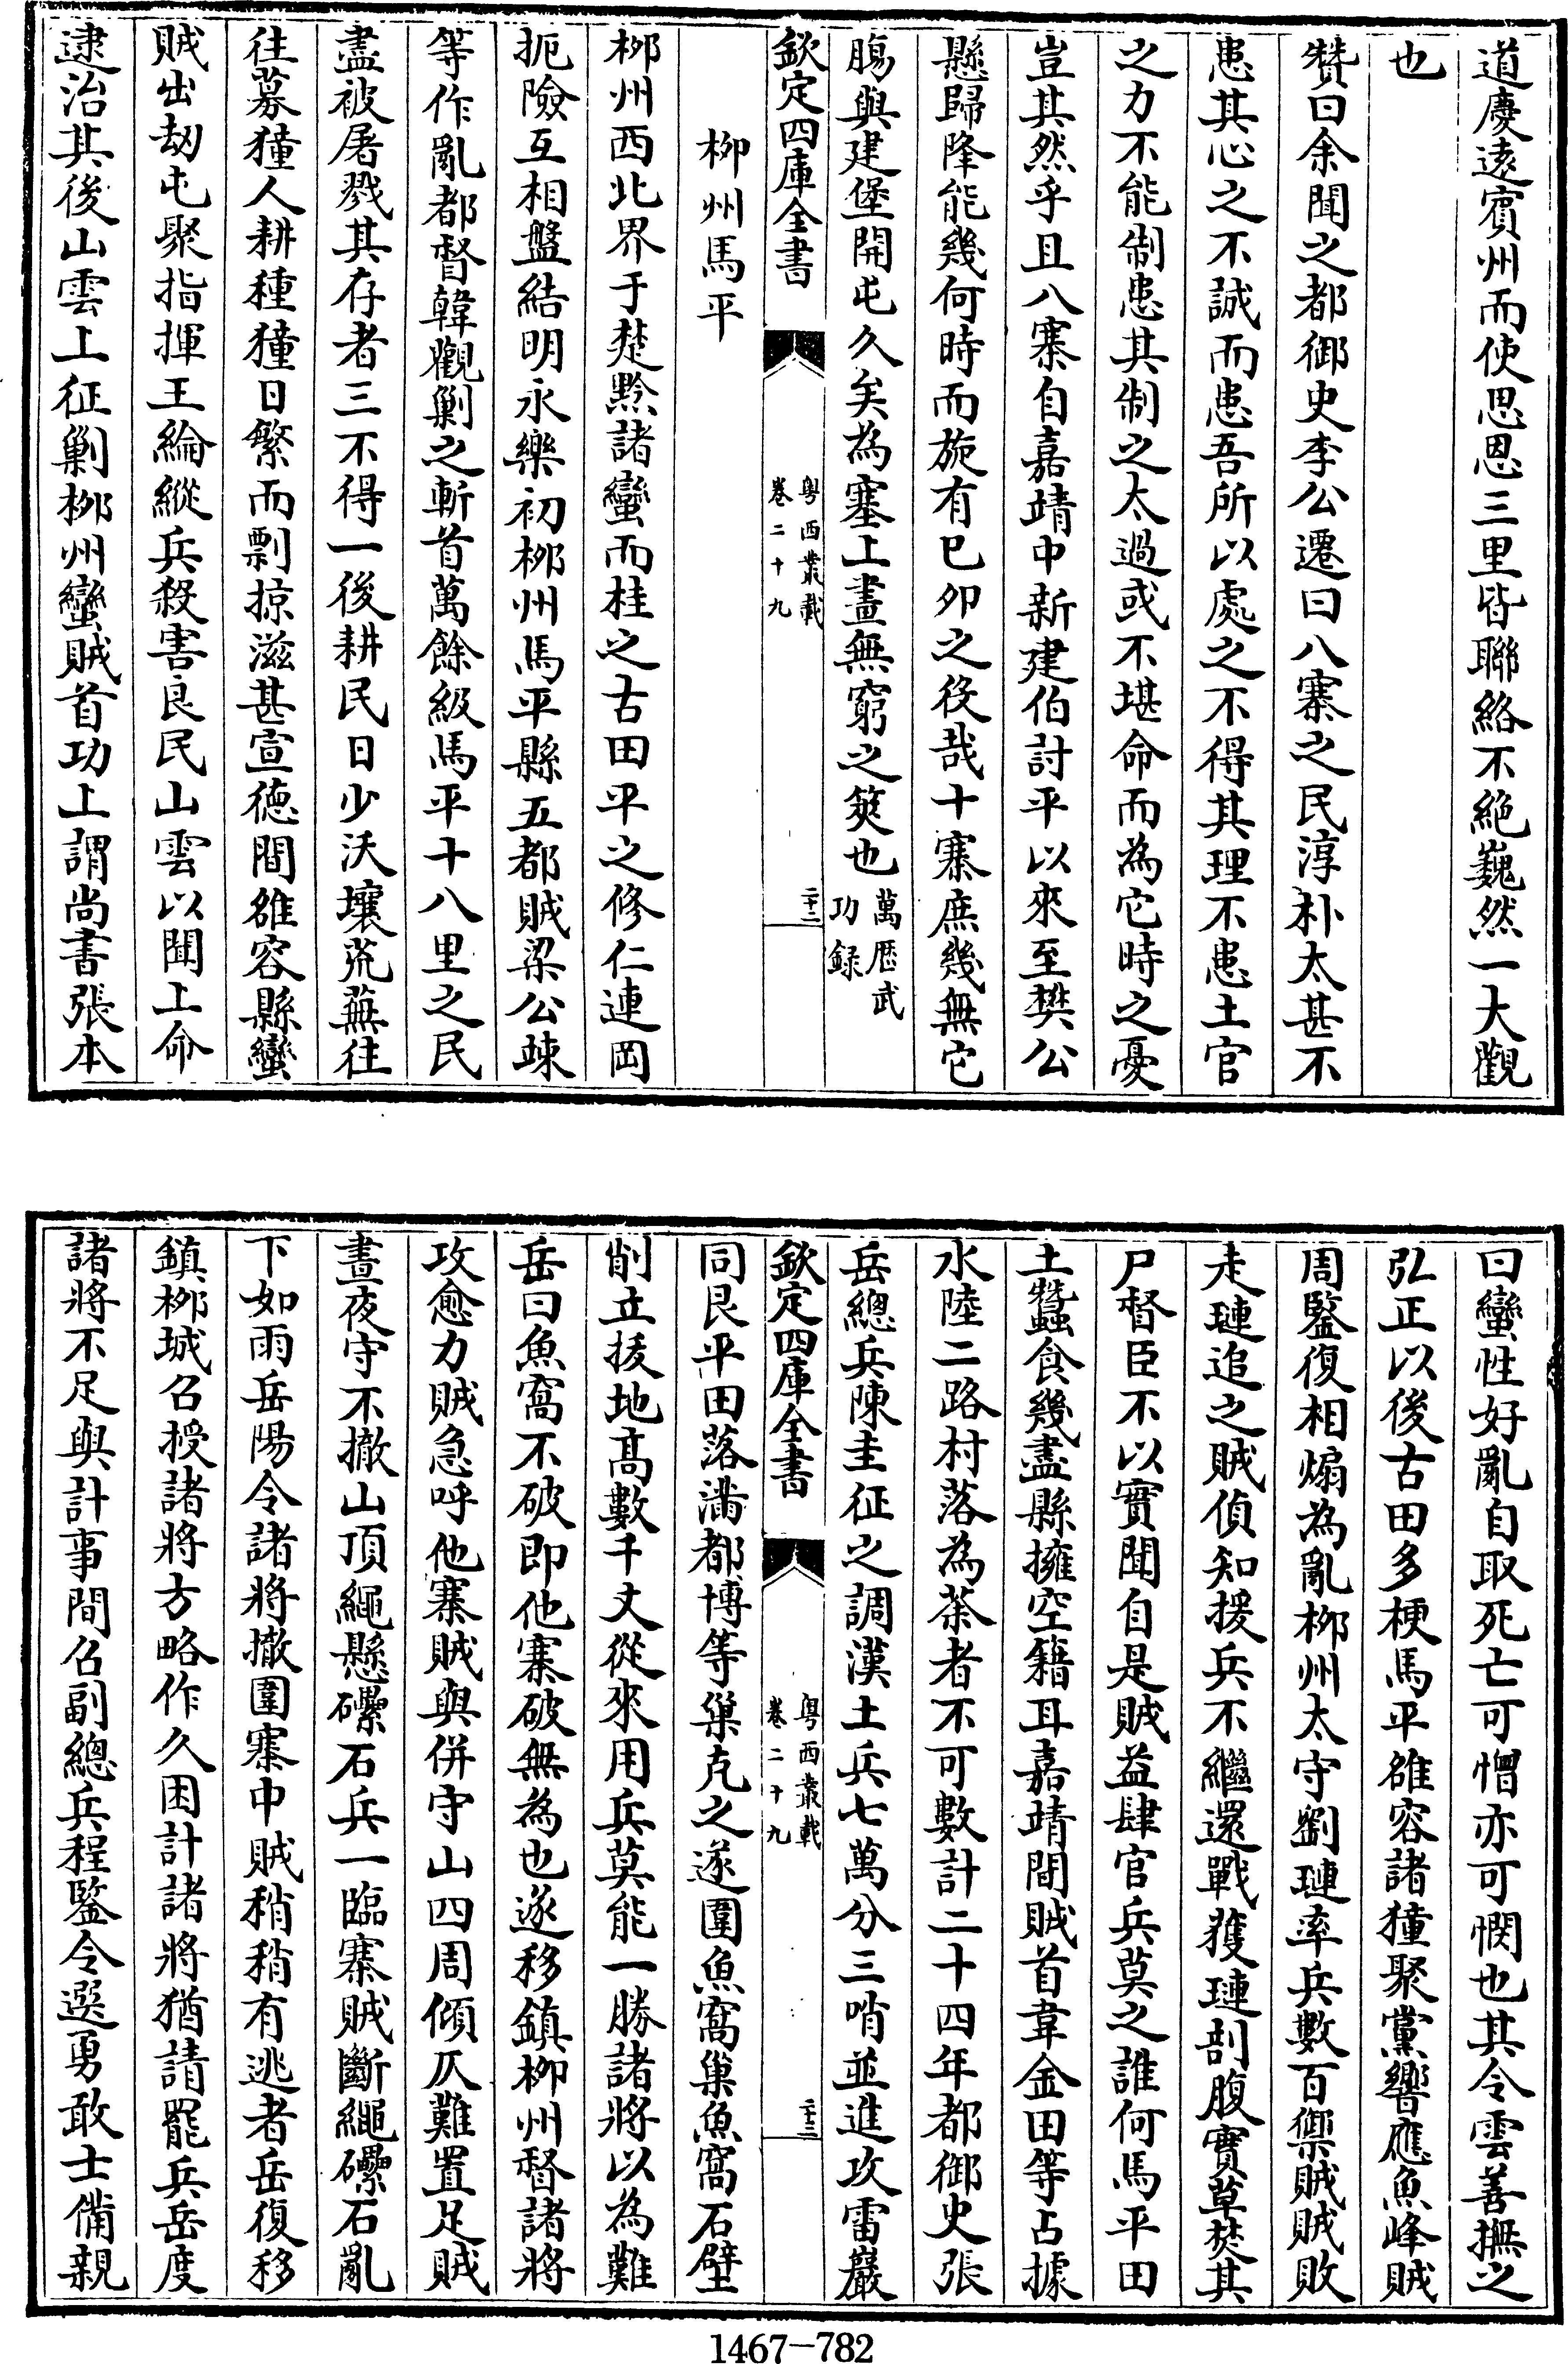 道慶遠賓州而使思恩三里皆聯絡不絶巍然一大觀
也
贊曰余聞之都御史李公遷曰八寨之民淳朴太甚不
患其心之不誠而患吾所以處之不得其理不患土官
之力不能制患其制之太過或不堪命而為它時之憂
豈其然乎且八寨自嘉靖中新建伯討平以來至樊公
懸歸降能幾何時而旋有已卯之役哉十寨庶幾無它
腸與建堡開屯久矣為塞上畫無窮之筴也萬歴武功録
欽定四庫全書
粤西叢載
卷二十九
二十二
柳州馬平
栁州西北界于楚黔諸蠻而桂之古田平之修仁連岡
扼險互相盤結明永樂初栁州馬平縣五都賊梁公竦
等作亂都督韓觀剿之斬首萬餘級馬平十八里之民
盡被屠戮其存者三不得一後耕民日少沃壤荒蕪往
往募獞人耕種獞日繁而剽掠滋甚宣徳間雒容縣蠻
賊出劫屯聚指揮王綸縱兵殺害良民山雲以聞上命
逮治其後山雲上征剿栁州蠻賊首功上謂尚書張本
曰蠻性好亂自取死亡可憎亦可憫也其令雲善撫之
弘正以後古田多梗馬平雒容諸獞聚黨響應魚峰賊
周鑒復相煽為亂栁州太守劉璉率兵數百禦賊賊敗
走璉追之賊偵知援兵不繼還戰獲璉剖腹實草焚其
尸督臣不以實聞自是賊益肆官兵莫之誰何馬平田
土蠶食幾盡縣擁空籍耳嘉靖間賊首韋金田等占據
水陸二路村落為荼者不可數計二十四年都御史張
岳總兵陳圭征之調漢土兵七萬分三哨並進攻雷巖
欽定四庫全書
粤西叢載
卷二十九
二十三
同艮平田落滿都博等巢克之遂圍魚窩巢魚窩石壁
削立拔地髙數千丈從來用兵莫能一勝諸將以為難
岳曰魚窩不破即他寨破無為也遂移鎮栁州督諸將
攻愈力賊急呼他寨賊與併守山四周傾仄難置足賊
晝夜守不撤山頂繩懸礧石兵一臨寨賊斷繩礧石亂
下如雨岳陽令諸將撤圍寨中賊稍稍有逃者岳復移
鎮栁城召授諸將方略作久困計諸將猶請罷兵岳度
諸將不足與計事間召副總兵程鑒令選勇敢士備親
1467-782